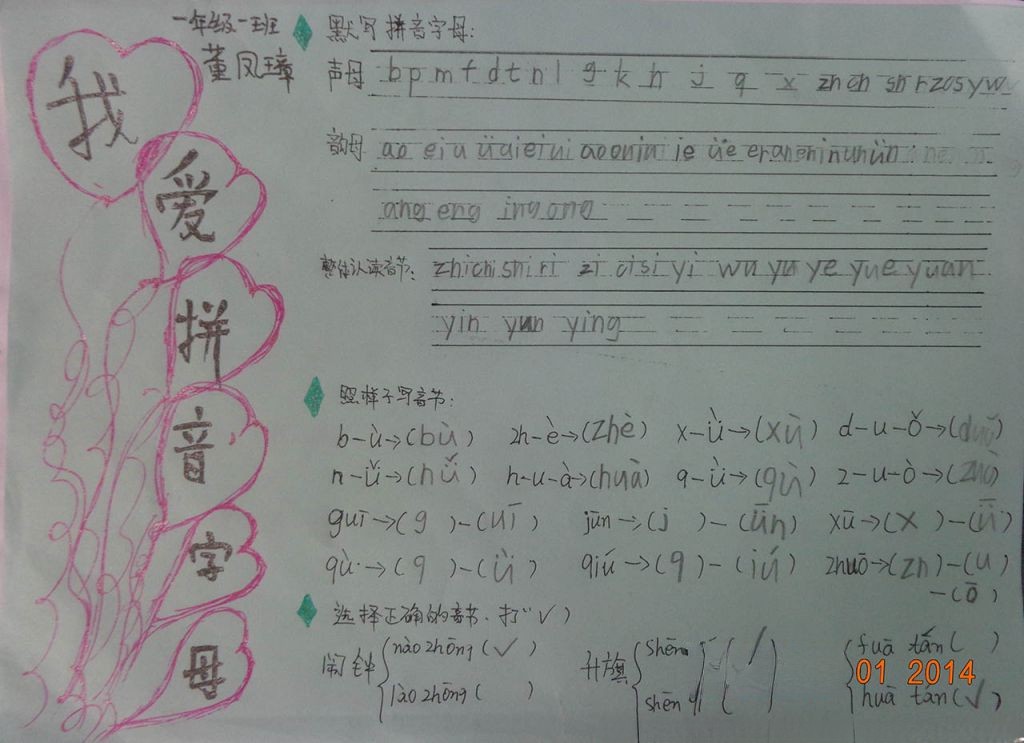 我爱拼音字母
一年级一班
董凤璋
默写拼音字母:
声母 b p m f d t n l g k h j q x zh ch sh r z c s y w
韵母 a o e i u ü ai ei ui ao ou iu ie üe er an en in un ün
ang eng ing ong
整体认读音节: zhi chi shi ri zi ci si yi wu yu ye yue yuan
yin yun ying
照样子写音节:
b-ù→(bù) zh-è→(zhè) x-ù→(xù) d-u-ǒ→(duǒ)
n-ǚ→(nǚ) h-u-à→(huà) q-ù→(qù) z-u-ò→(zuò)
guī→(g)-(uī) jūn→(j)-(ūn) xū→(x)-(ǖ)
qù→(q)-(ǜ) qiú→(q)-(iú) zhuō→(zh)-(u)
-(ō)
选择正确的音节,打"√)
闹钟 nào zhōng (√) 升旗 shēng (√) huā tán (√)
lào zhōng ( ) shēn qí fuā tán ( )
01 2014